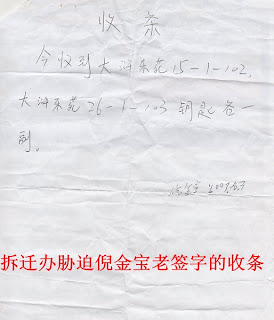 收条
今收到大浒东苑15-1-102,
大浒东苑26-1-103 钥匙各一
副。
拆迁办胁迫倪金宝老签字的收条